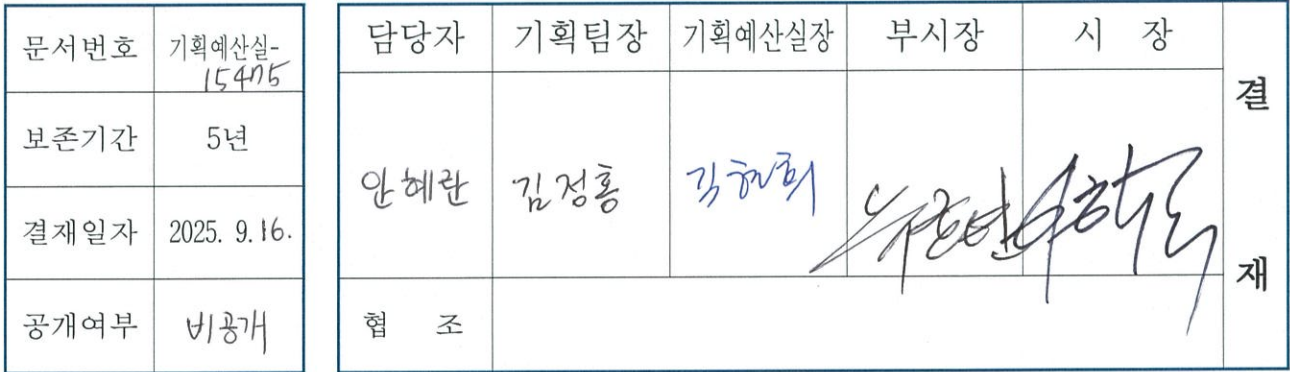 문서번호 기획예산실-
15475
보존기간 5년
결재일자 2025. 9. 16.
공개여부 비공개
담당자 기획팀장 기획예산실장 부시장 시 장
안혜란 김정홍
협 조
결
재